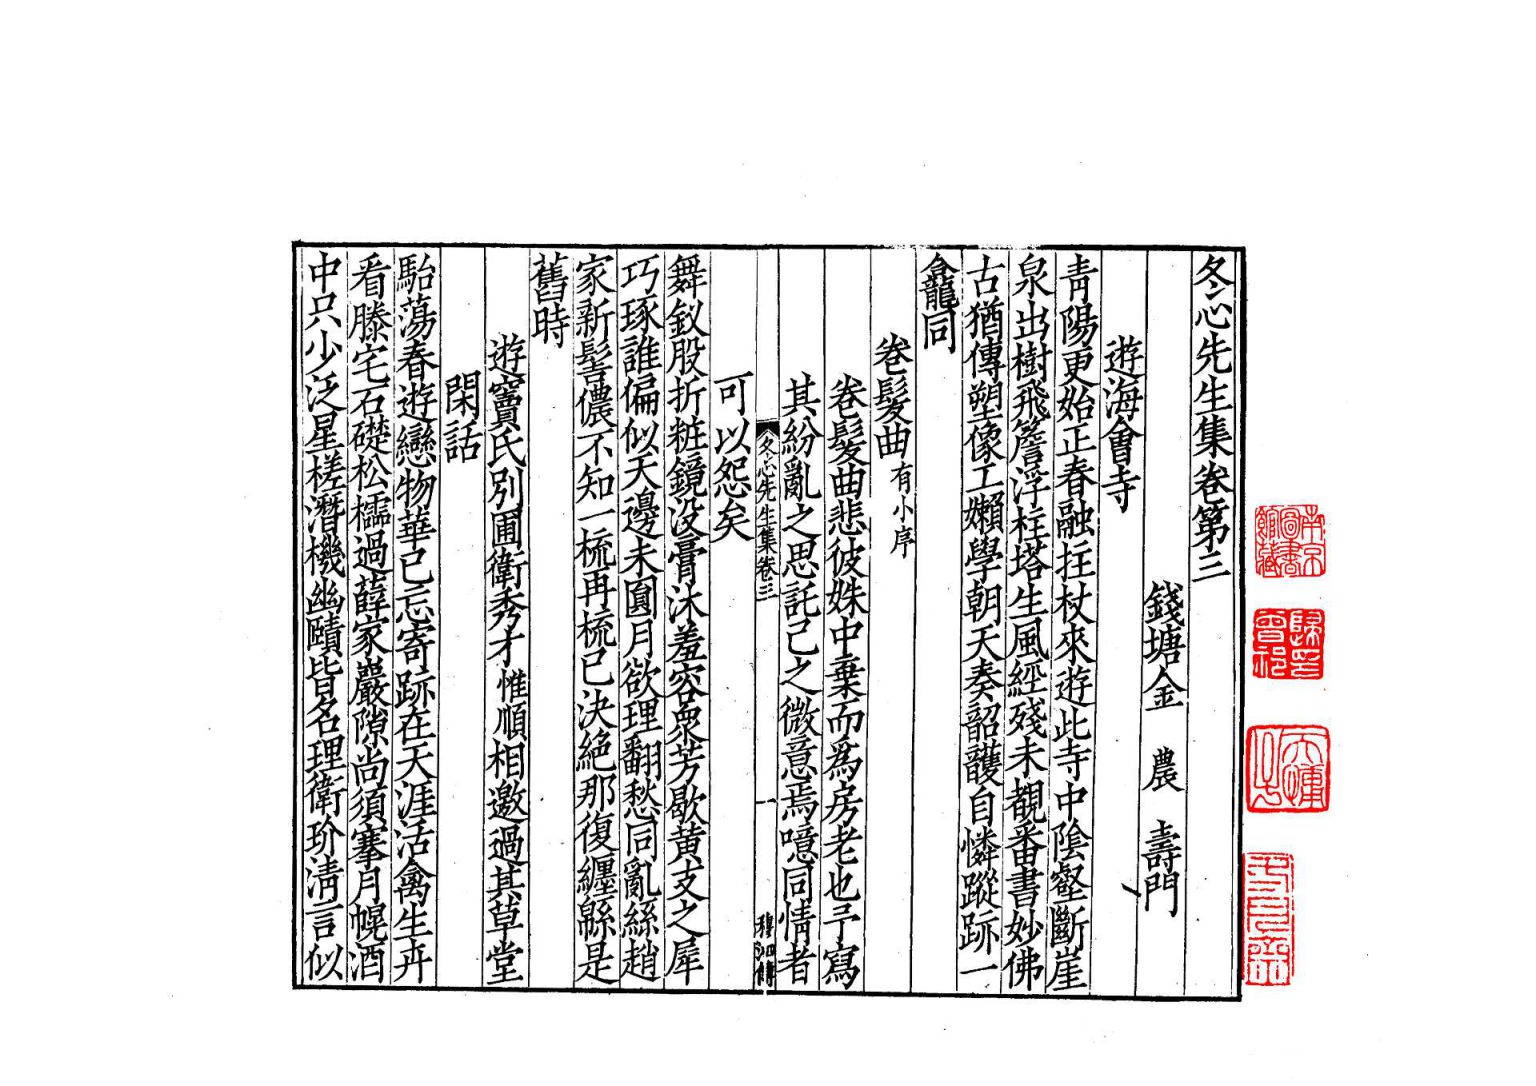 冬心先生集卷第三
錢塘金 農 壽門
遊海會寺
青陽更始正春融拄杖來遊此寺中陰壑斷崖
泉出樹飛簷浮柱塔生風經殘未覩番書妙佛
古猶傳塑像工嬾學朝天奏韶頀自憐蹤跡一
龕同
卷髮曲有小序
卷髮曲悲彼姝中棄而爲房老也予寫
其紛亂之思託己之微意焉噫同情者
可以怨矣
冬心先生集卷三
一
舞釵股折粧鏡没膏沐羞容衆芳歇黄支之犀
巧琢誰偏似天邊未圓月欲理翻愁同亂絲趙
家新髻儂不知一梳再梳已決絶那復纏緜是
舊時
遊竇氏別圃衛秀才惟順相邀過其草堂
閑話
駘蕩春遊戀物華已忘寄跡在天涯活禽生卉
看滕宅石礎松櫺過薛家巖隙尚須搴月幌酒
中只少泛星槎潛機幽賾皆名理衛玠清言似